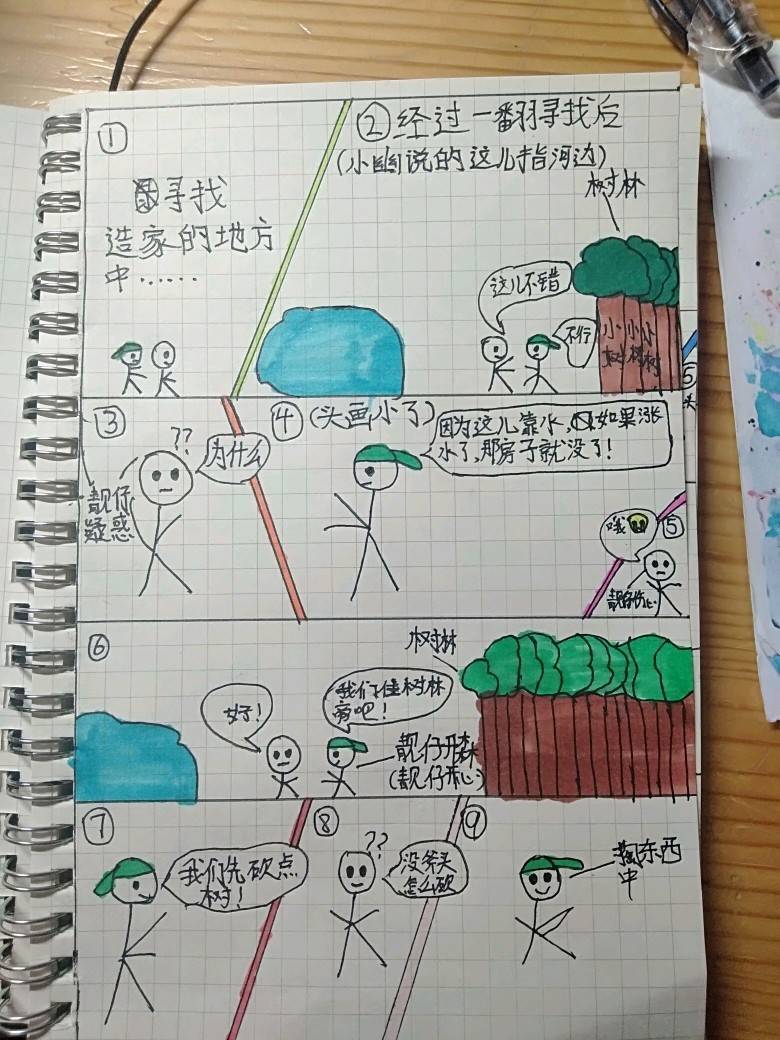 ①
寻找
造家的地方
中……
②经过一翻寻找后
(小幽说的这儿指河边)
树林
这儿不错
不行
小树
小树
小树
③
??
为什么
靓仔
疑惑
④(头画小了)
因为这儿靠水,如果涨
水了,那房子就没了!
⑤
哦
靓仔伤心
⑥
树林
好!
我们住树林
旁吧!
靓仔开森
(靓仔开心)
⑦
我们先砍点
树!
⑧
??
没斧头
怎么砍
⑨
掏东西
中